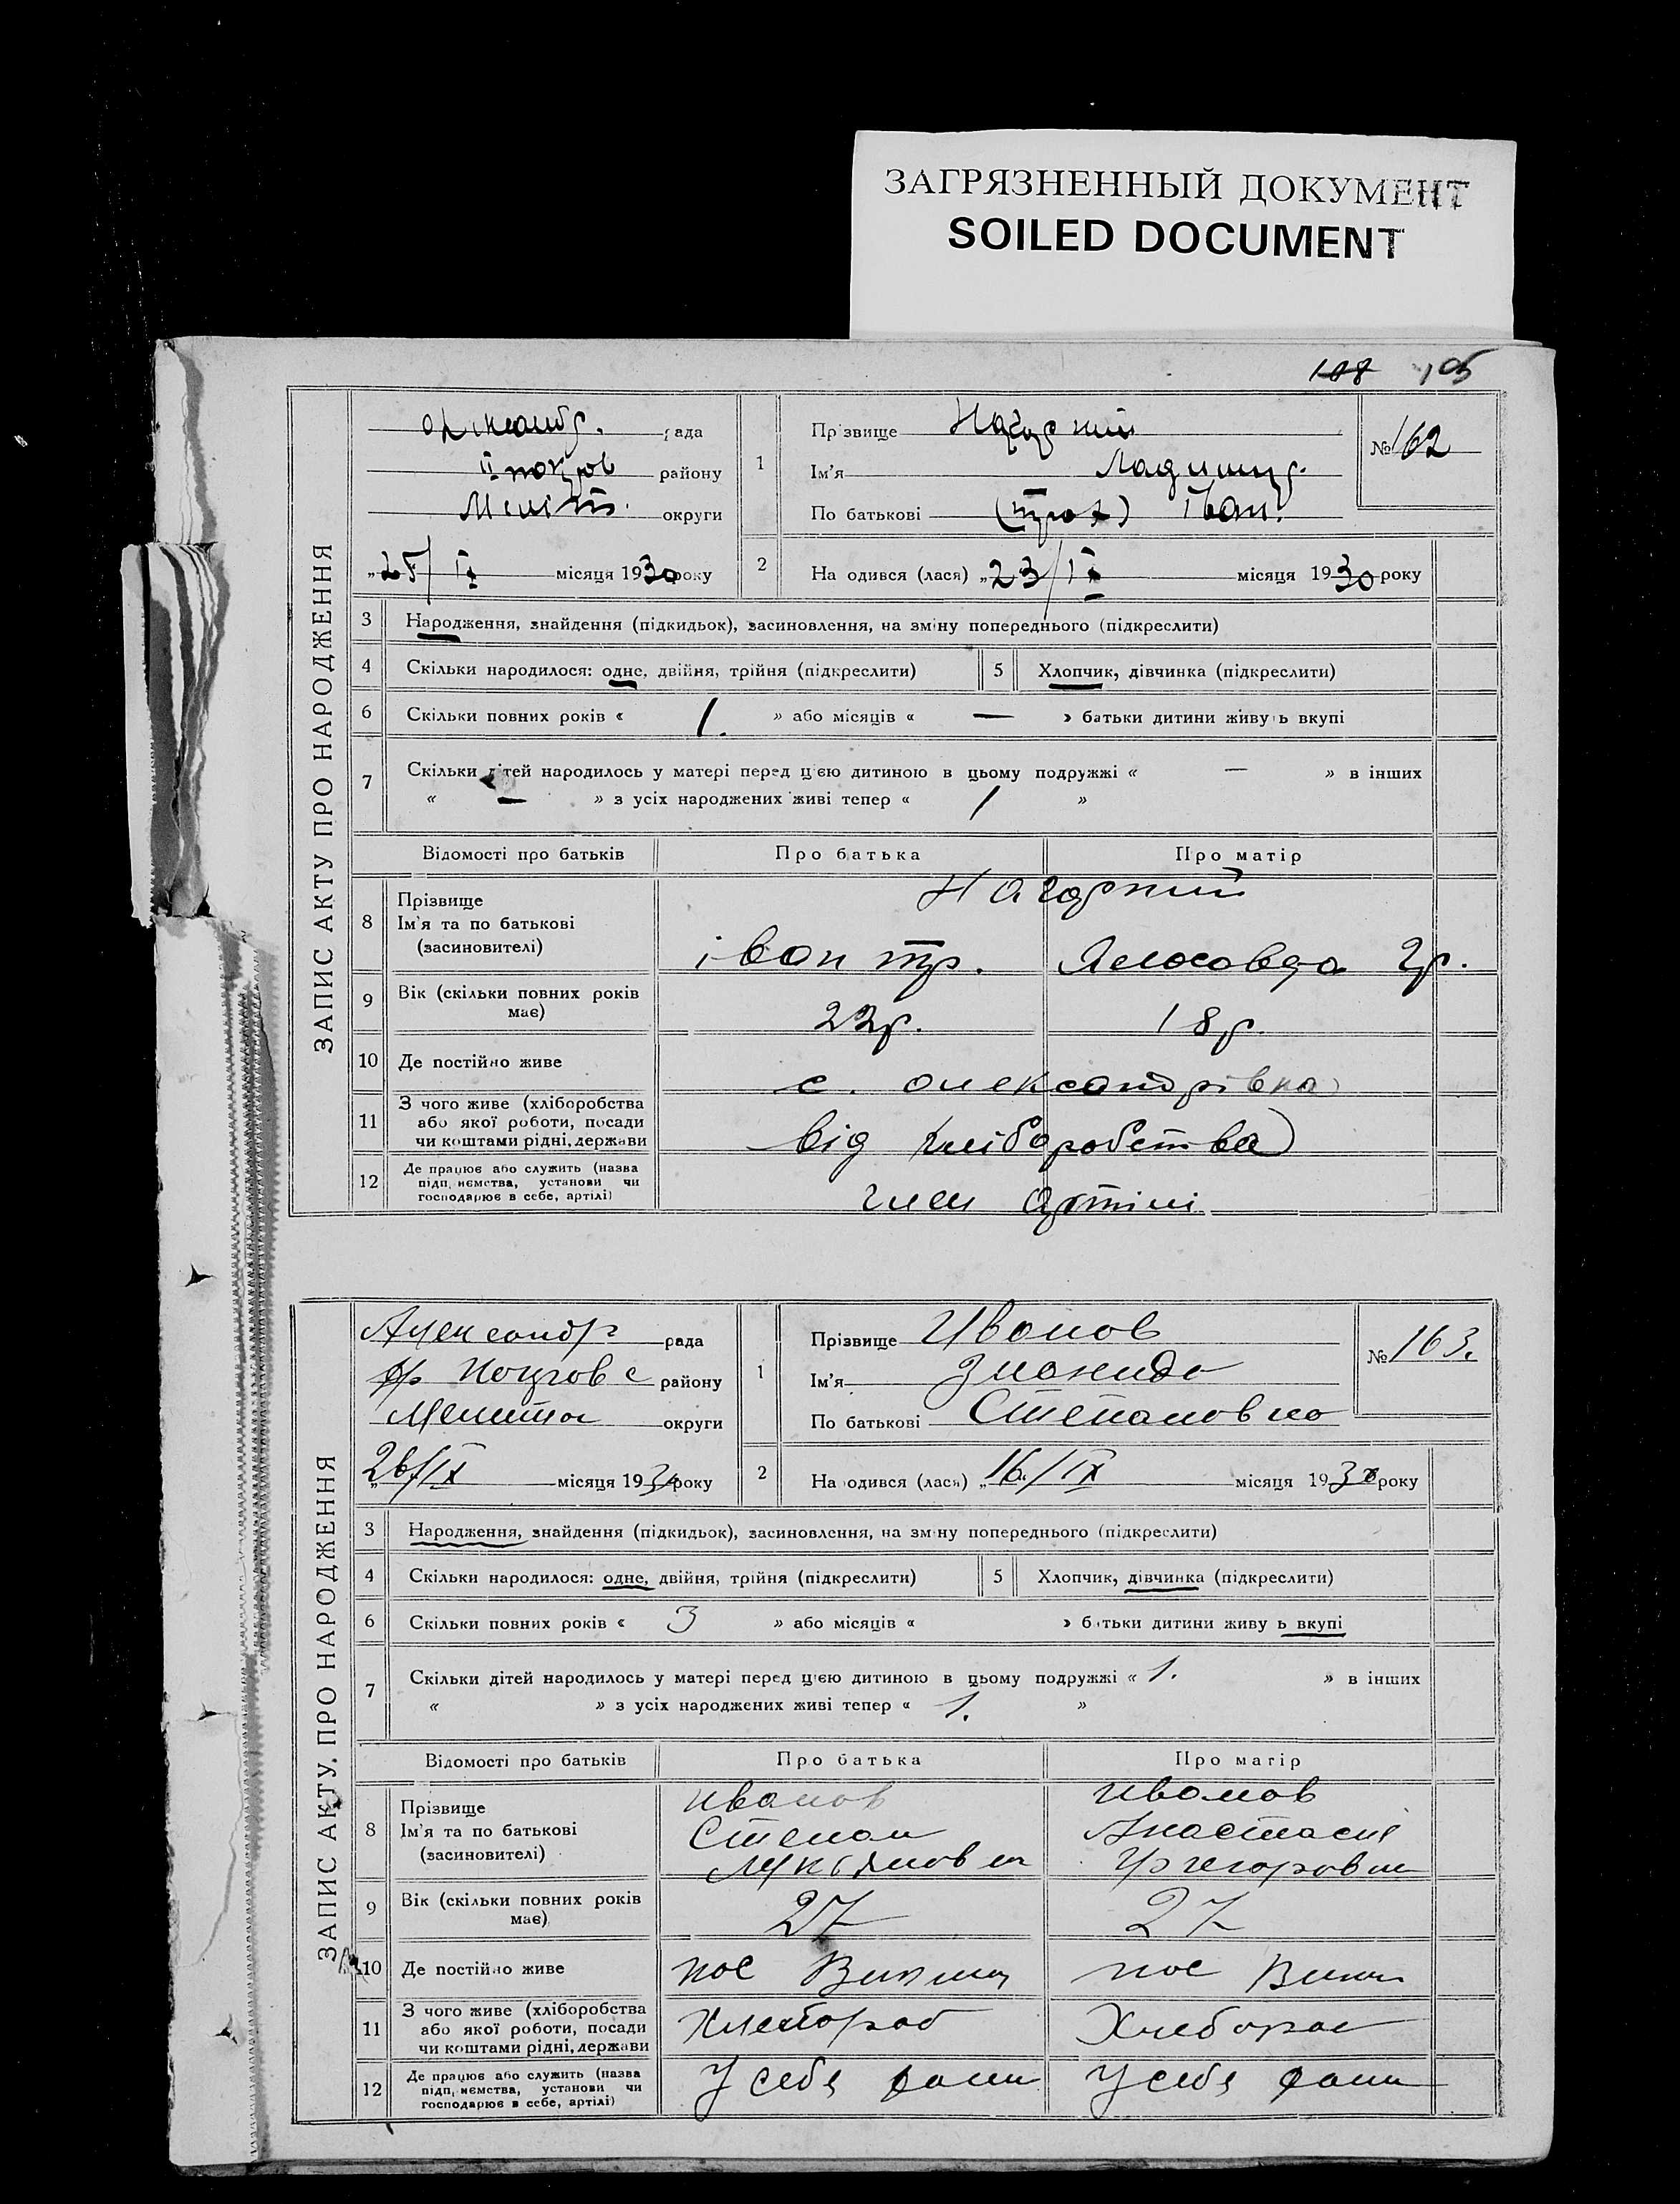 ЗАГРЯЗНЕННЫЙ ДОКУМЕНТ
SOILED DOCUMENT
108 105
ЗАПИС АКТУ ПРО НАРОДЖЕННЯ
рада
району
Меліт. округи
IX місяця 1930 року
1
Прізвище Нагорний
Ім'я
По батькові Іван.
№ 162
2
На одився (лася) „23/IX місяця 1930 року
3 Народження, знайдення (підкидьок), засиновлення, на зміну попереднього (підкреслити)
4 Скільки народилося: одне, двійня, трійня (підкреслити) 5 Хлопчик, дівчинка (підкреслити)
6 Скільки повних років « 1. » або місяців « — » батьки дитини живуть вкупі
7 Скільки дітей народилось у матері перед цією дитиною в цьому подружжі « — » в інших
« — » з усіх народжених живі тепер « 1 »
Відомості про батьків Про батька Про матір
8 Прізвище
Ім'я та по батькові
(засиновителі)
Нагорний
іван тр. гр.
9 Вік (скільки повних років має) 22р. 18р.
10 Де постійно живе с. олександрівка
11 З чого живе (хліборобства
або якої роботи, посади
чи коштами рідні, держави
від хліборобства
12 Де працює або служить (назва
підп, иємства, установи чи
господарює в себе, артілі)
член артілі
ЗАПИС АКТУ. ПРО НАРОДЖЕННЯ
Александр рада
Покровс району
Мелито округи
26/IX місяця 1930 року
1
Прізвище Иванов
Ім'я
По батькові Степановна
№ 163.
2
На одився (лася) „16/IX місяця 1930 року
3 Народження, знайдення (підкидьок), засиновлення, на зміну попереднього (підкреслити)
4 Скільки народилося: одне, двійня, трійня (підкреслити) 5 Хлопчик, дівчинка (підкреслити)
6 Скільки повних років « 3 » або місяців « » батьки дитини живу ь вкупі
7 Скільки дітей народилось у матері перед цією дитиною в цьому подружжі « 1. » в інших
« » з усіх народжених живі тепер « 1. »
Відомості про батьків Про батька Про матір
8 Прізвище
Ім'я та по батькові
(засиновителі)
Иванов Иванов
Степан Анастасия
Лукьянов
9 Вік (скільки повних років має) 27 27
10 Де постійно живе пос пос
11 З чого живе (хліборобства
або якої роботи, посади
чи коштами рідні, держави
Хлебороб Хлебороб
12 Де працює або служить (назва
підп, иємства, установи чи
господарює в себе, артілі)
У себя У себя